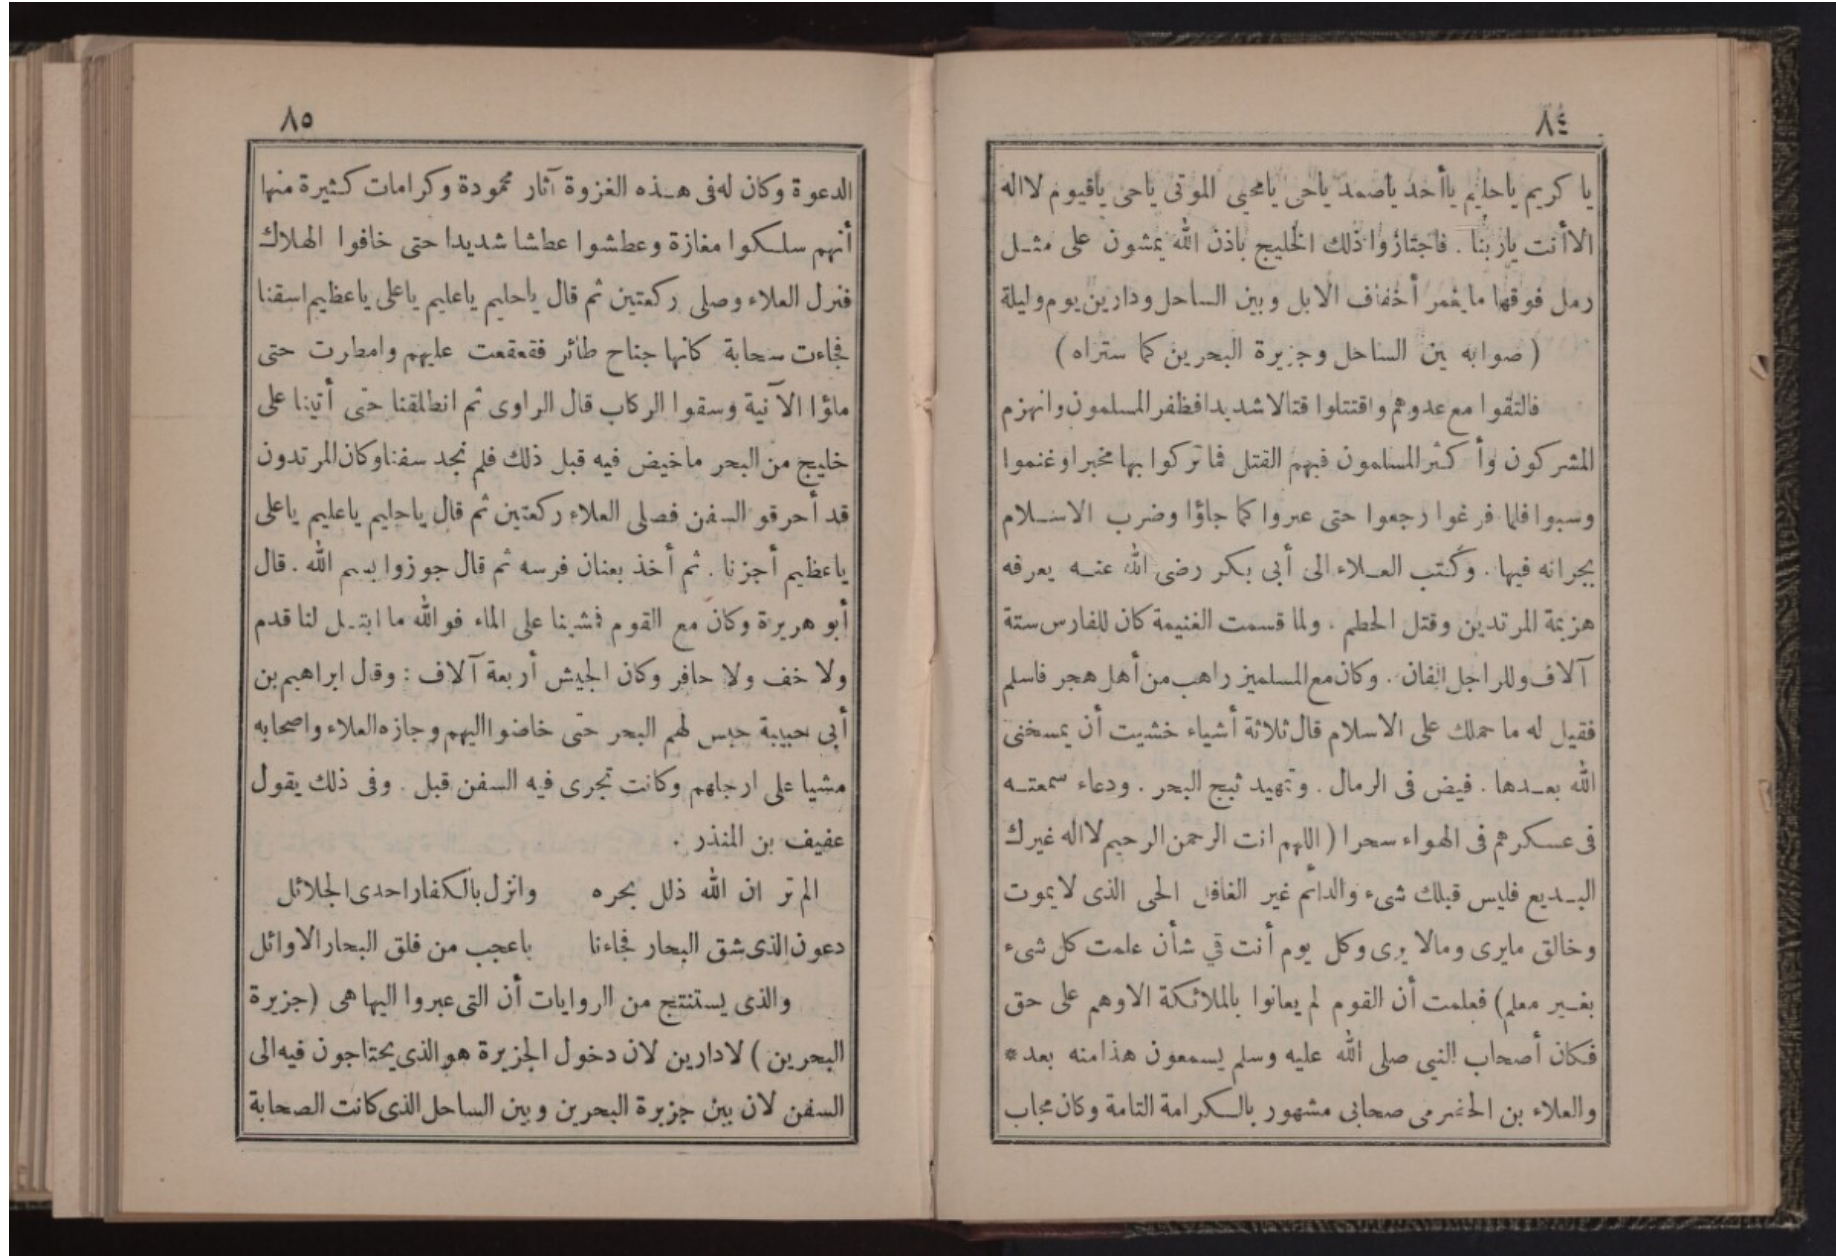 ٨٤
يا كريم ياحليم ياأحد ياصمد ياحى يامحيى الموتى ياحى ياقيوم لااله
الاأنت ياربنا . فاجتازوا ذلك الخليج باذن الله يمشون على مثل
رمل فوقها مايغمر أخفاف الابل وبين الساحل ودارين يوم وليلة
( صوابه بين الساحل وجزيرة البحرين كما ستراه )
فالتقوا مع عدوهم واقتتلوا قتالا شديدا فظفر المسلمون وانهزم
المشركون وأكثر المسلمون فيهم القتل فما تركوا بها مخبرا وغنموا
وسبوا فلما فرغوا رجعوا حتى عبروا كما جاؤا وضرب الاسلام
بجرانه فيها . وكتب العلاء الى أبى بكر رضى الله عنه يعرفه
هزيمة المرتدين وقتل الحطم . ولما قسمت الغنيمة كان للفارس ستة
آلاف وللراجل الفان . وكان مع المسلمين راهب من أهل هجر فاسلم
فقيل له ما حملك على الاسلام قال ثلاثة أشياء خشيت أن يمسخنى
الله بعدها . فيض فى الرمال . وتمهيد ثبج البحر . ودعاء سمعته
فى عسكرهم فى الهواء سحرا ( اللهم انت الرحمن الرحيم لااله غيرك
البديع فليس قبلك شىء والدائم غير الغافل الحى الذى لايموت
وخالق مايرى ومالا يرى وكل يوم أنت في شأن علمت كل شىء
بغير معلم) فعلمت أن القوم لم يعانوا بالملائكة الاوهم على حق
فكان أصحاب النبي صلى الله عليه وسلم يسمعون هذا منه بعد *
والعلاء بن الحضرمى صحابى مشهور بالكرامة التامة وكان مجاب
٨٥
الدعوة وكان له فى هذه الغزوة آثار محمودة وكرامات كثيرة منها
أنهم سلكوا مفازة وعطشوا عطشا شديدا حتى خافوا الهلاك
فنزل العلاء وصلى ركعتين ثم قال ياحليم ياعليم ياعلى ياعظيم اسقنا
فجاءت سحابة كانها جناح طائر فقعقعت عليهم وامطرت حتى
ملؤا الآنية وسقوا الركاب قال الراوى ثم انطلقنا حتى أتينا على
خليج من البحر ماخيض فيه قبل ذلك فلم نجد سفنا وكان المرتدون
قد أحرقو السفن فصلى العلاء ركعتين ثم قال ياحليم ياعليم ياعلى
ياعظيم أجزنا . ثم أخذ بعنان فرسه ثم قال جوزوا بسم الله . قال
أبو هريرة وكان مع القوم فمشينا على الماء فوالله ما ابتل لنا قدم
ولا خف ولا حافر وكان الجيش أربعة آلاف : وقال ابراهيم بن
أبى حبيبة حبس لهم البحر حتى خاضوا اليهم وجازه العلاء واصحابه
مشيا على ارجلهم وكانت تجرى فيه السفن قبل . وفى ذلك يقول
عفيف بن المنذر .
الم تر ان الله ذلل بحره وانزل بالكفار احدى الجلائل
دعون الذى شق البحار فجاءنا باعجب من فلق البحار الاوائل
والذى يستنتج من الروايات أن التى عبروا اليها هى (جزيرة
البحرين ) لادارين لان دخول الجزيرة هو الذى يحتاجون فيه الى
السفن لان بين جزيرة البحرين وبين الساحل الذى كانت الصحابة